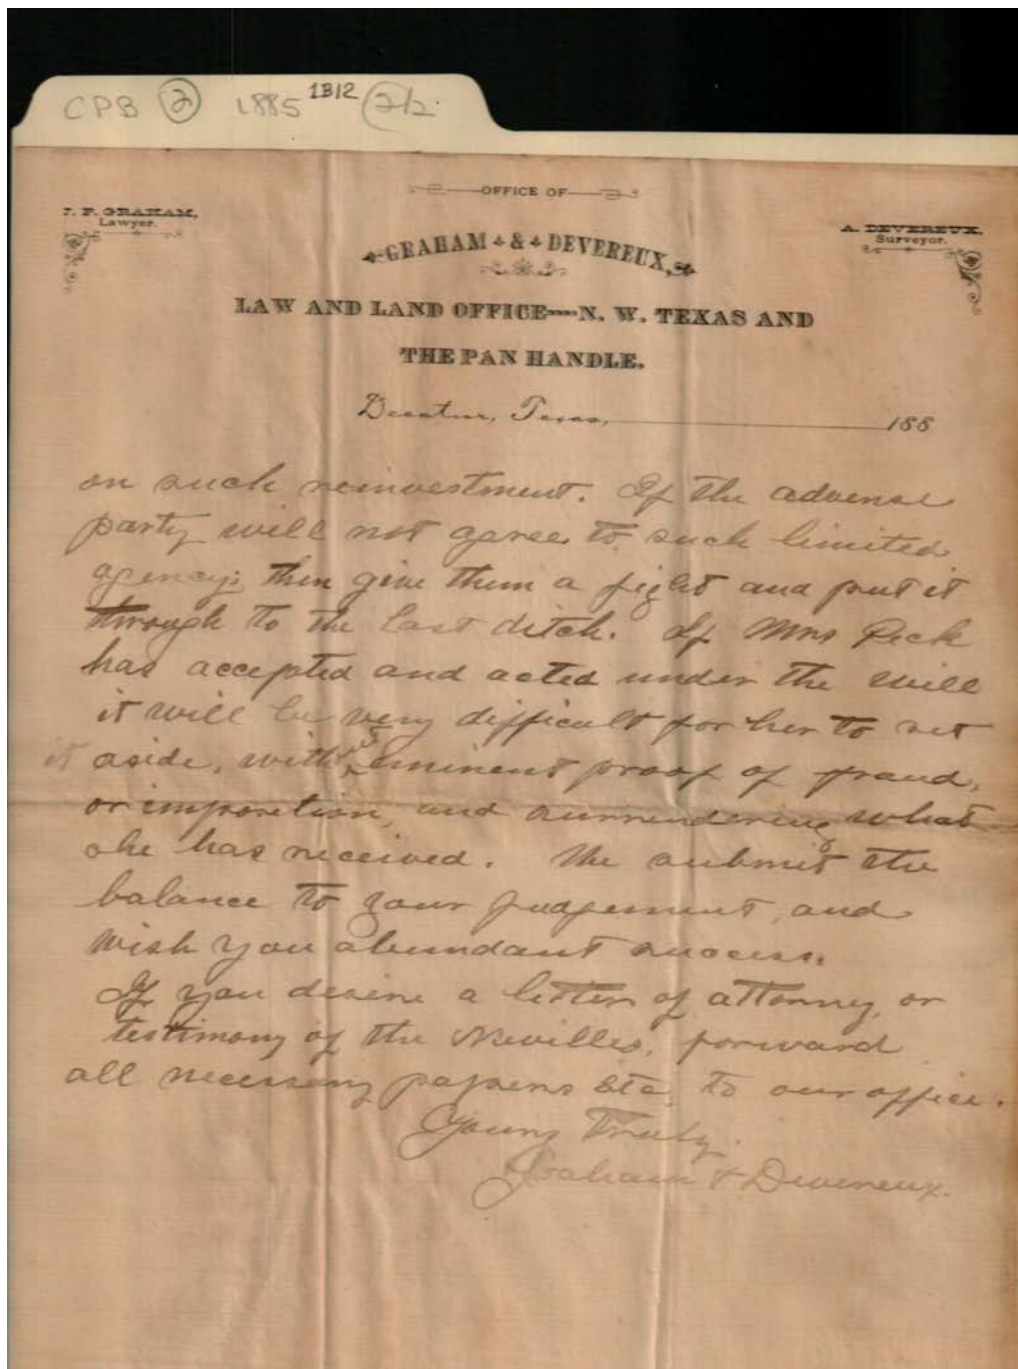 CPB ② 1885 1B12 2/2
OFFICE OF
J. P. GRAHAM,
Lawyer.
A. DEVEREUX,
Surveyor.
GRAHAM & DEVEREUX,
LAW AND LAND OFFICE—N. W. TEXAS AND
THE PAN HANDLE.
Decatur, Texas, 188
on such reinvestment. If the adverse
party will not agree to such limited
agency; then give them a fight and put it
through to the last ditch. If Mrs Peck
has accepted and acted under the will
it will be very difficult for her to set
it aside, with eminent proof of fraud,
or imposition, and surrendering what
she has received. We submit the
balance to your judgement, and
wish you abundant success.
If you desire a letter of attorney, or
testimony of the Nevilles, forward
all necessary papers etc, to our office.
Yours Truly.
Graham & Devereux.